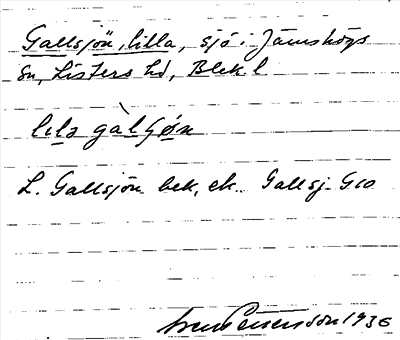 Gallsjön, lilla, sjö i Jämshögs
Sn, Listers hd, Blek l
lılə gàlʃøn
L. Gallsjön bek, ek. Gallsj. G10
Petersson 1936